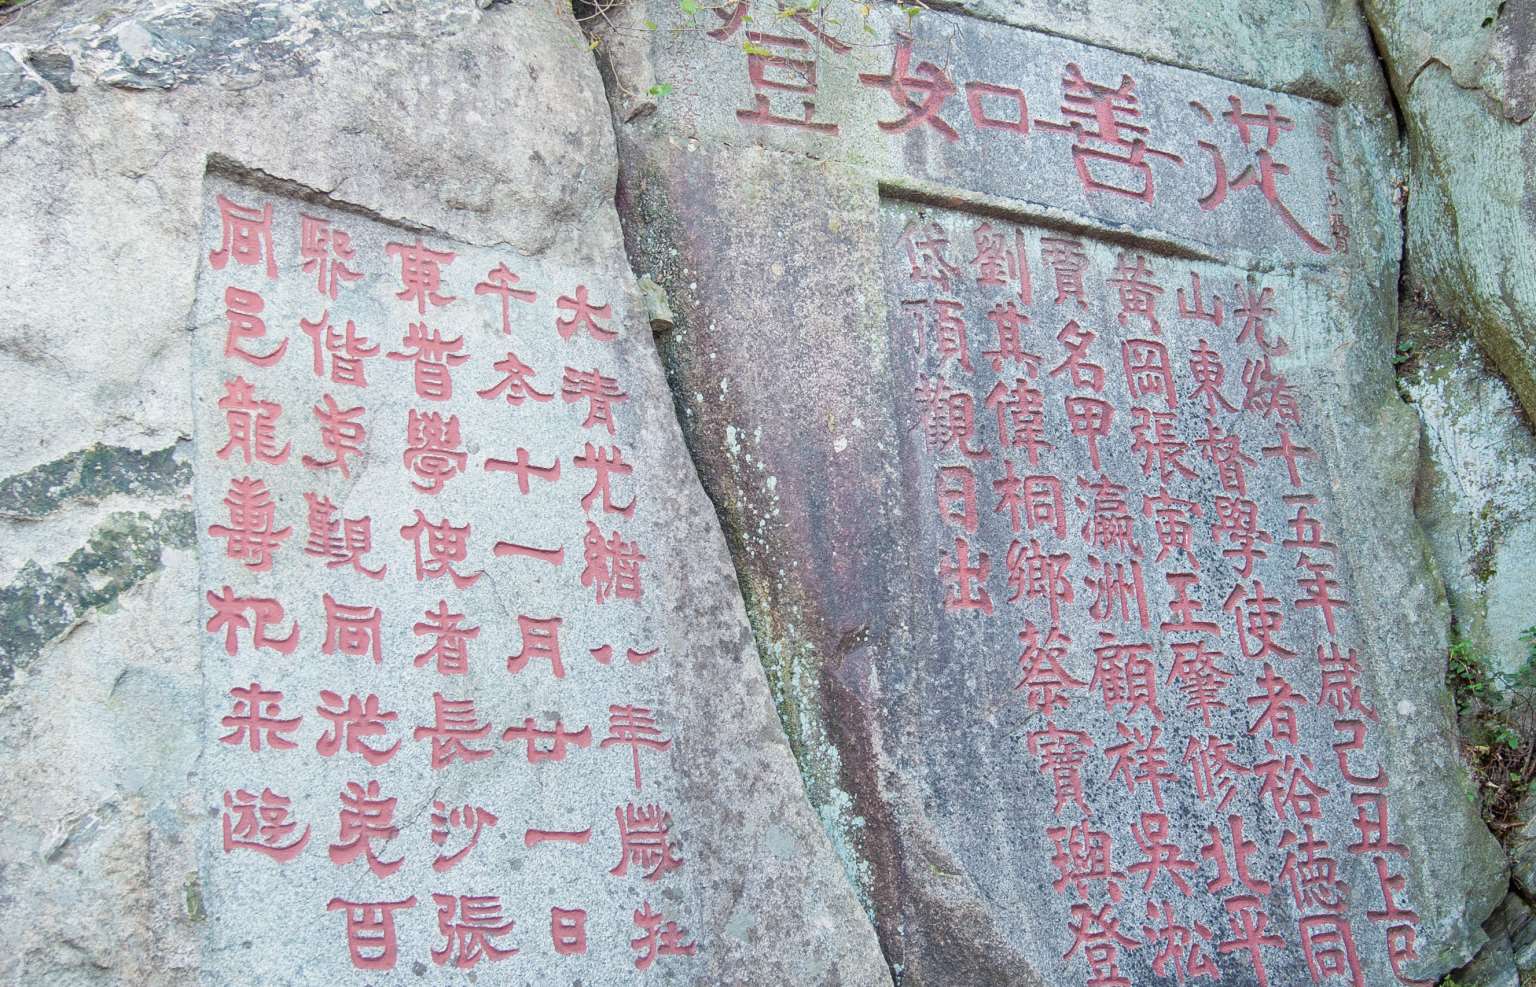 從善如登
光緒十五年歲己丑上巳
山東督學使者裕德同
黃岡張寅王肇修北平
賈名甲瀛洲顧祥吳淞
劉其偉桐鄉蔡寶璵登
岱頂觀日出
大清光緒八年歲在
午冬十一月廿一日
東督學使者長沙張
偕弟觀同從弟百
同邑龍壽杞來游